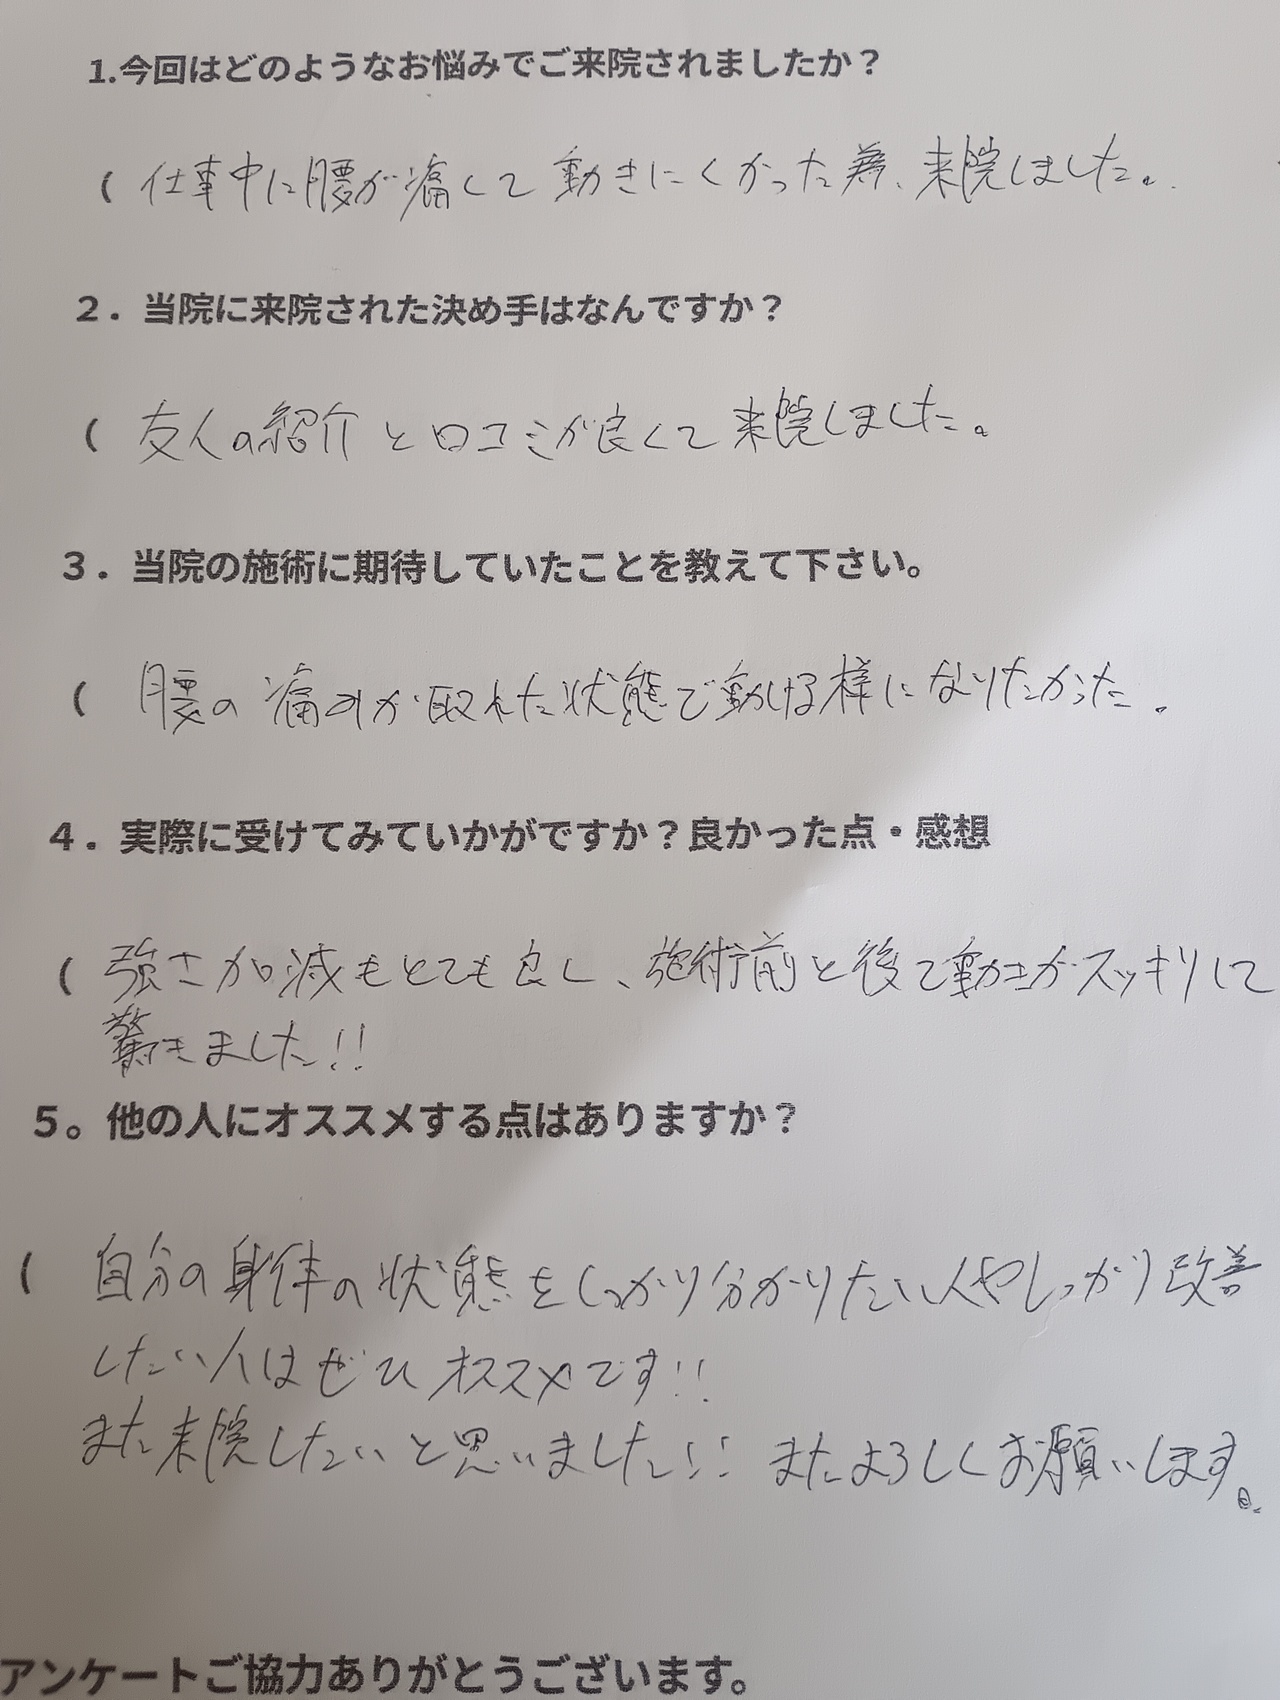 1.今回はどのようなお悩みでご来院されましたか？
( 仕事中に腰が痛くて動きにくかった為、来院しました。
２．当院に来院された決め手はなんですか？
( 友人の紹介と口コミが良くて来院しました。
３．当院の施術に期待していたことを教えて下さい。
( 腰の痛みが取れた状態で動ける様になりたかった。
４．実際に受けてみていかがですか？良かった点・感想
( 強さ加減もとても良く、施術前と後で動きがスッキリして
驚きました!!
５。他の人にオススメする点はありますか？
( 自分の身体の状態をしっかり分かりたい人やしっかり改善
したい人はぜひオススメです!!
また来院したいと思いました!! またよろしくお願いします。
アンケートご協力ありがとうございます。